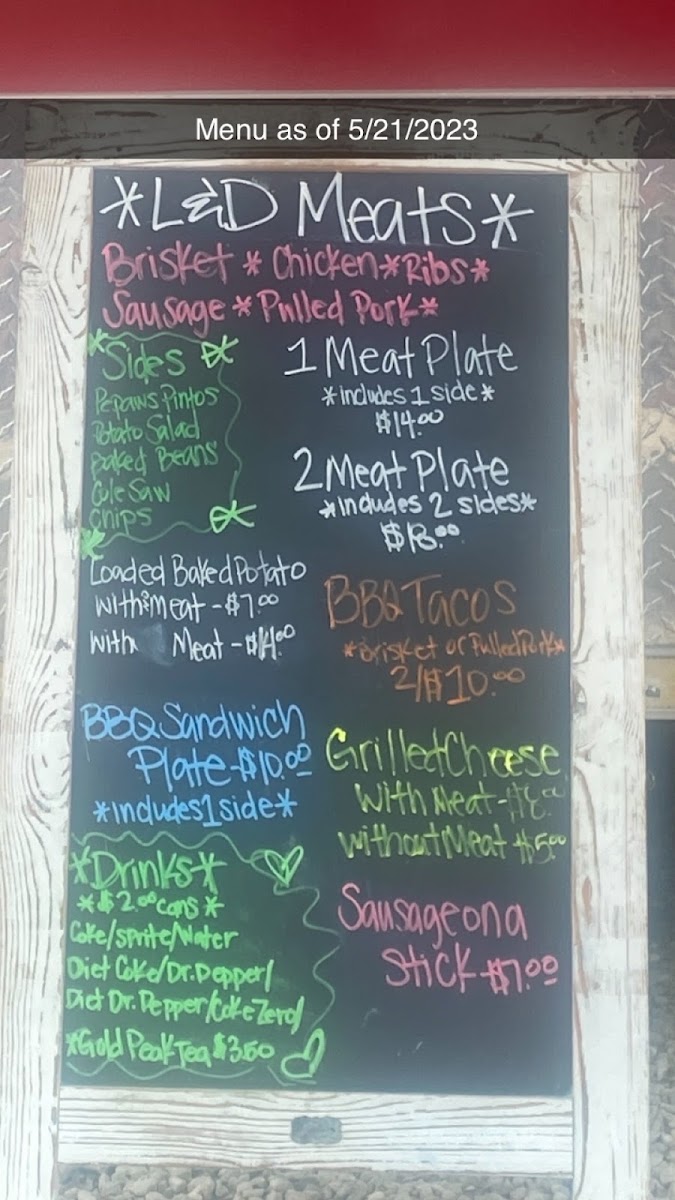 Menu as of 5/21/2023
*L&D Meats*
Brisket * Chicken * Ribs *
Sausage * Pulled Pork *
Sides
Pepaws Pintos
Potato Salad
Baked Beans
Cole Saw
Chips
1 Meat Plate
*includes 1 side*
$14.00
2 Meat Plate
*includes 2 sides*
$18.00
Loaded Baked Potato
Meat - $7.00
With Meat -
BBQ Tacos
*Brisket or Pulled Pork*
2/$10.00
BBQ Sandwich
Plate - $10.00
*includes 1 side*
Grilled Cheese
With Meat - $8.00
without Meat $5.00
*Drinks*
*$2.00 cans*
Coke/Sprite/Water
Diet Coke/Dr. Pepper/
Diet Dr. Pepper/Coke Zero/
*Gold Peak Tea $3.50
Sausage on a
Stick $7.00